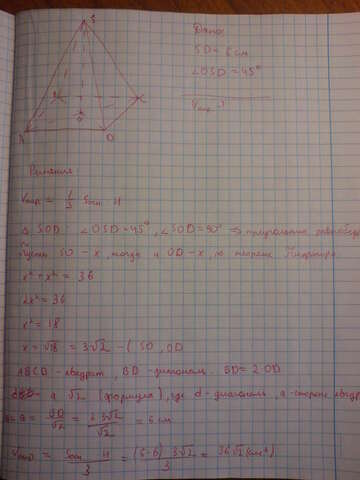 S
B
C
O
A
D
Дано:
SD = 6 см
∠OSD = 45°
Vпир - ?
Решение
Vпир = 1/3 Sосн H
Δ SOD ∠OSD = 45°, ∠SOD = 90° ⇒ треугольник
Пусть SO - x, тогда и OD - x, по теореме Пифагора
x² + x² = 36
2x² = 36
x² = 18
x = √18 = 3√2 - ( SO, OD
ABCD - квадрат, BD - диагональ. BD = 2·OD
a √2 (формула), где d - диагональ, a - сторона
= a = BD/√2 = 2·3√2/√2 = 6 см
Vпир = Sосн H/3 = (6·6)·3√2/3 = 36√2 (см³)